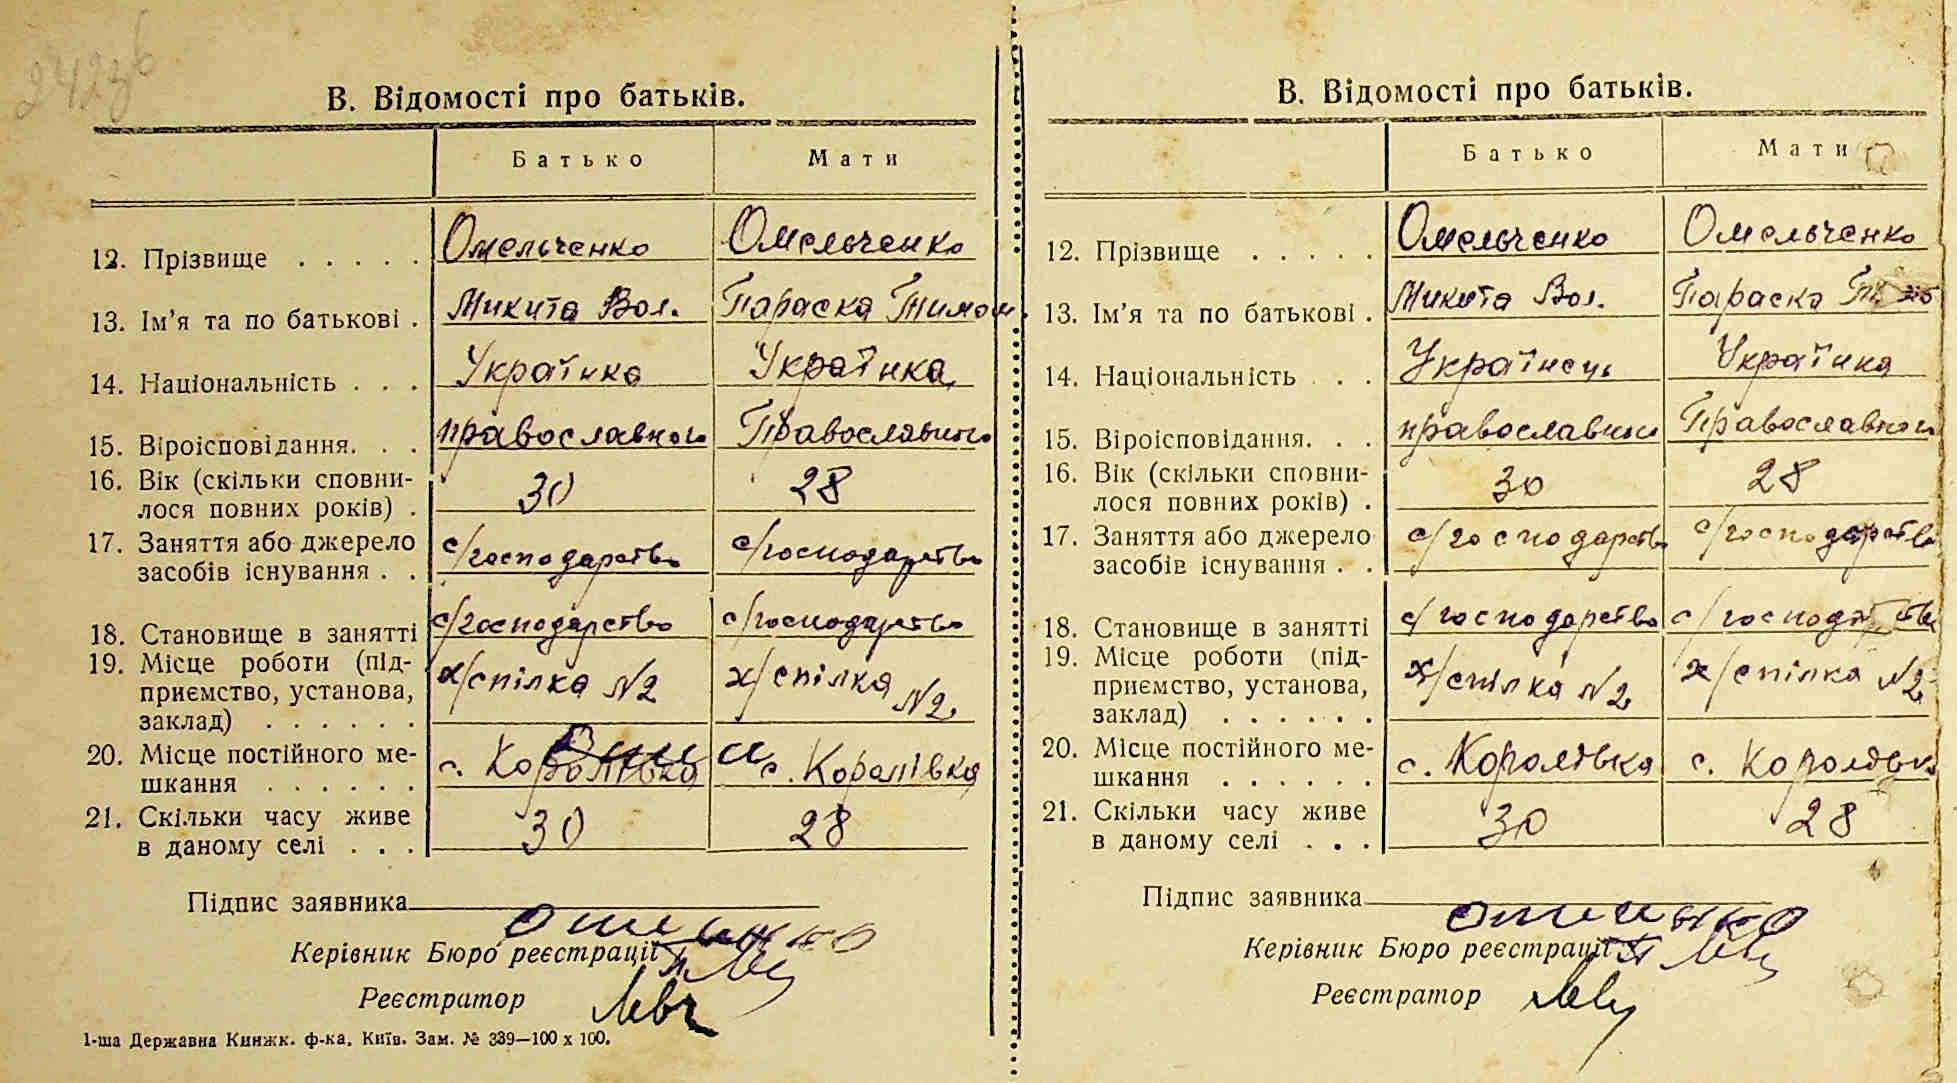 24236
В. Відомості про батьків.
Батько Мати
12. Прізвище . . . . . Омельченко Омельченко
13. Ім’я та по батькові . Микита Вол. Параска Тимоф.
14. Національність . . . Українка Українка
15. Віроісповідання. . . православного Православного
16. Вік (скільки сповни-
лося повних років) . 30 28
17. Заняття або джерело
засобів існування . . с/господарство с/господарство
18. Становище в занятті с/господарство с/господарство
19. Місце роботи (під-
приємство, установа,
заклад) . . . . . . х/спілка №2 х/спілка №2
20. Місце постійного ме-
шкання . . . . . . с. Королівка с. Королівка
21. Скільки часу живе
в даному селі . . . 30 28
Підпис заявника
Керівник Бюро реєстрації
Реєстратор
1-ша Державна Книжк. ф-ка. Київ. Зам. № 339—100 х 100.
В. Відомості про батьків.
Батько Мати
12. Прізвище . . . . . Омельченко Омельченко
13. Ім’я та по батькові . Микита Вол. Параска
14. Національність . . . Українець Українка
15. Віроісповідання. . . православного Православного
16. Вік (скільки сповни-
лося повних років) . 30 28
17. Заняття або джерело
засобів існування . . с/господарство с/господарство
18. Становище в занятті с/господарство с/господарство
19. Місце роботи (під-
приємство, установа,
заклад) . . . . . . х/спілка №2 х/спілка №2
20. Місце постійного ме-
шкання . . . . . . с. Королівка с. Королівка
21. Скільки часу живе
в даному селі . . . 30 28
Підпис заявника
Керівник Бюро реєстрації
Реєстратор